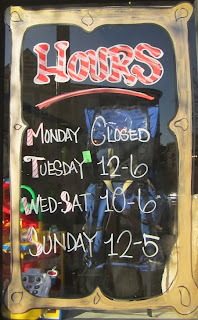 HOURS
MONDAY CLOSED
TUESDAY 12-6
WED-SAT 10-6
SUNDAY 12-5